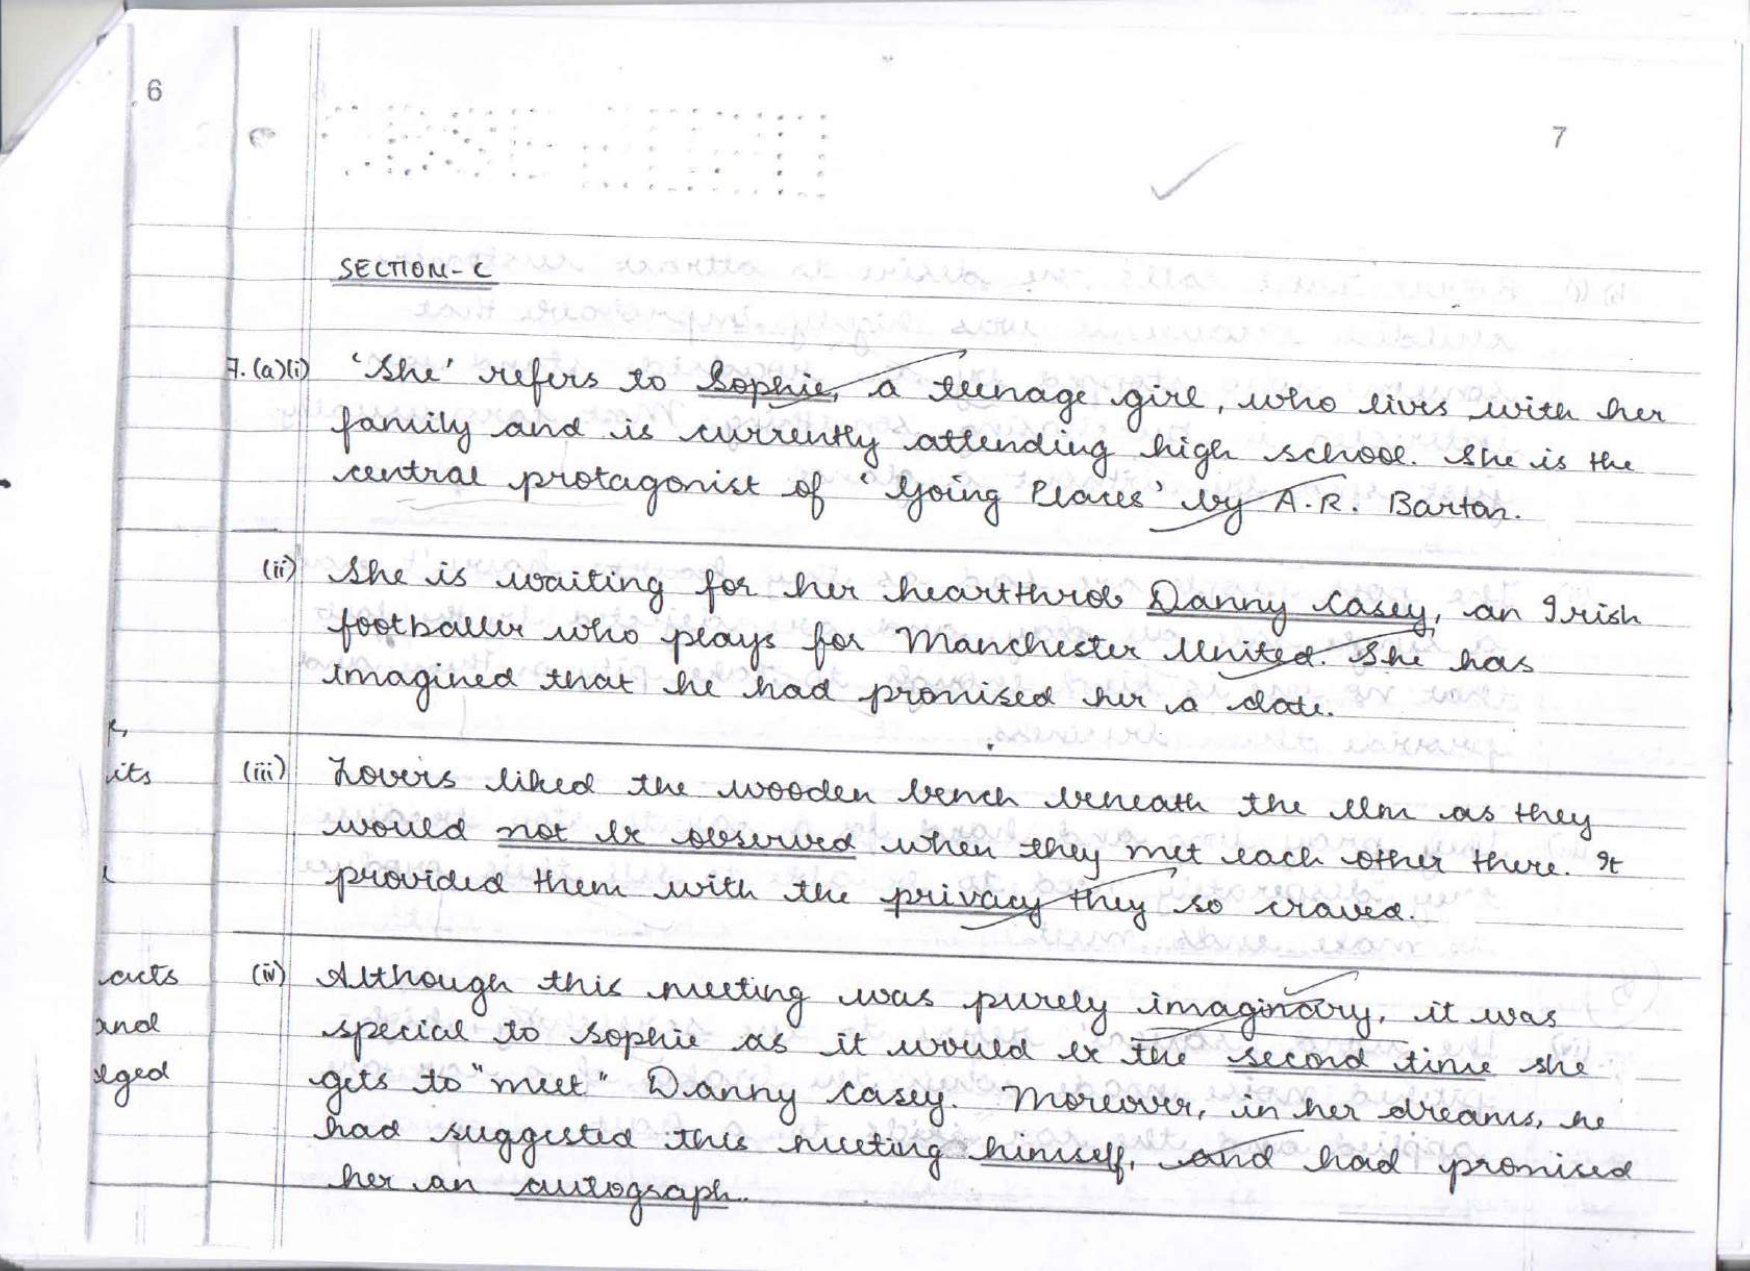 6
7
SECTION-C
7.(a)(i) 'She' refers to Sophie, a teenage girl, who lives with her
family and is currently attending high school. She is the
central protagonist of 'Going Places' by A.R. Barton.
(ii) She is waiting for her heartthrob Danny Casey, an Irish
footballer who plays for Manchester United. She has
imagined that he had promised her a date.
its
(iii) Lovers liked the wooden bench beneath the elm as they
would not be observed when they met each other there. It
provided them with the privacy they so craved.
acts
(iv) Although this meeting was purely imaginary, it was
and
special to Sophie as it would be the second time she
eged
gets to "meet" Danny Casey. Moreover, in her dreams, he
had suggested this meeting himself, and had promised
her an autograph.